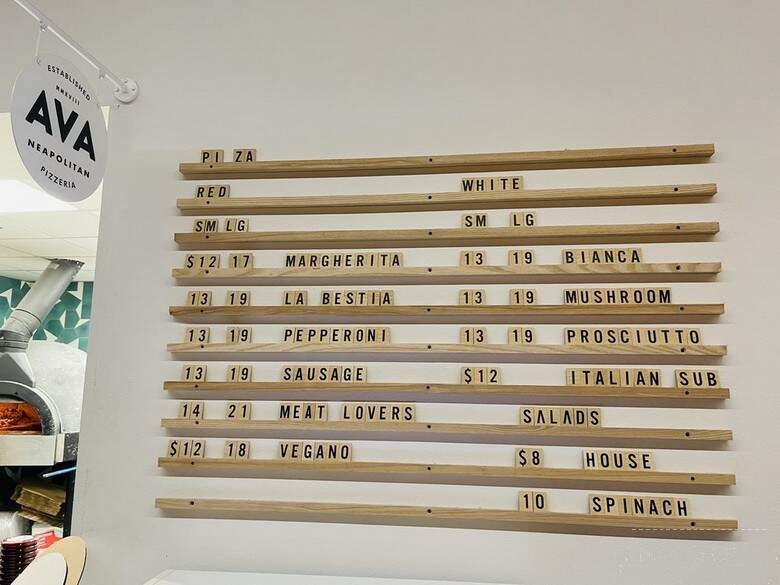 ESTABLISHED
MMXVIII
AVA
NEAPOLITAN
PIZZERIA
PI ZA
RED WHITE
SM LG SM LG
$12 17 MARGHERITA 13 19 BIANCA
13 19 LA BESTIA 13 19 MUSHROOM
13 19 PEPPERONI 13 19 PROSCIUTTO
13 19 SAUSAGE $12 ITALIAN SUB
14 21 MEAT LOVERS SALADS
$12 18 VEGANO $8 HOUSE
10 SPINACH